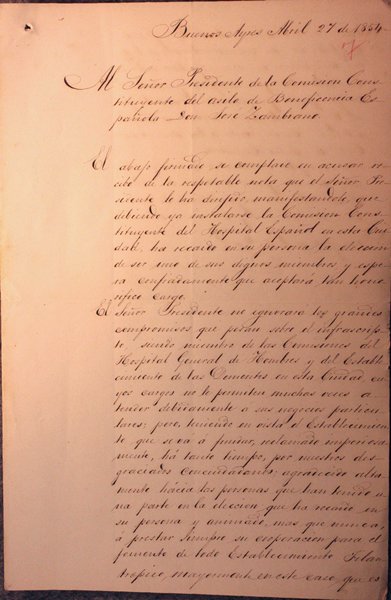 Buenos Ayres Abril 27 de 1854
Al Señor Presidente de la Comision Cons-
tituyente del asilo de Beneficencia Es-
pañola Don José Zambrano
El abajo firmado se complace en acusar re-
cibo de la respetable nota que el Señor Pre-
sidente le ha dirijido manifestandole, que
debiendo ya instalarse la Comision Cons-
tituyente del Hospital Español en esta Ciu-
dad, ha recaido en su persona la eleccion
de ser uno de sus dignos miembros y espe-
ra confiadamente que aceptará tan hono-
rifico cargo.
El Señor Presidente no ignorara los grandes
compromisos que pesan sobre el infrascrip-
to, siendo miembro de las Comisiones del
Hospital General de Hombres y del Estable-
cimiento de las Dementes en esta Ciudad, cu-
yos cargos no le permiten muchas veces a-
tender debidamente a sus negocios particu-
lares; pero, teniendo en vista el Establecimien-
to que se vá á fundar, reclamado imperiosa-
mente, há tanto tiempo, por nuestros des-
graciados Conciudadanos; agradecido alta-
mente hácia las personas que han tenido u-
na parte en la eleccion que ha recaido en
su persona y animado, mas que nunca
á prestar siempre su cooperacion para el
fomento de todo Establecimiento Filan-
tropico, mayormente en este caso, que es